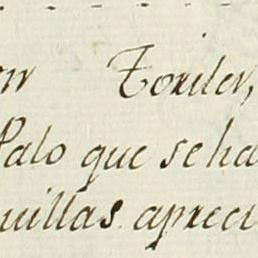 Toxiler,
Palo que se ha
uillas apreci